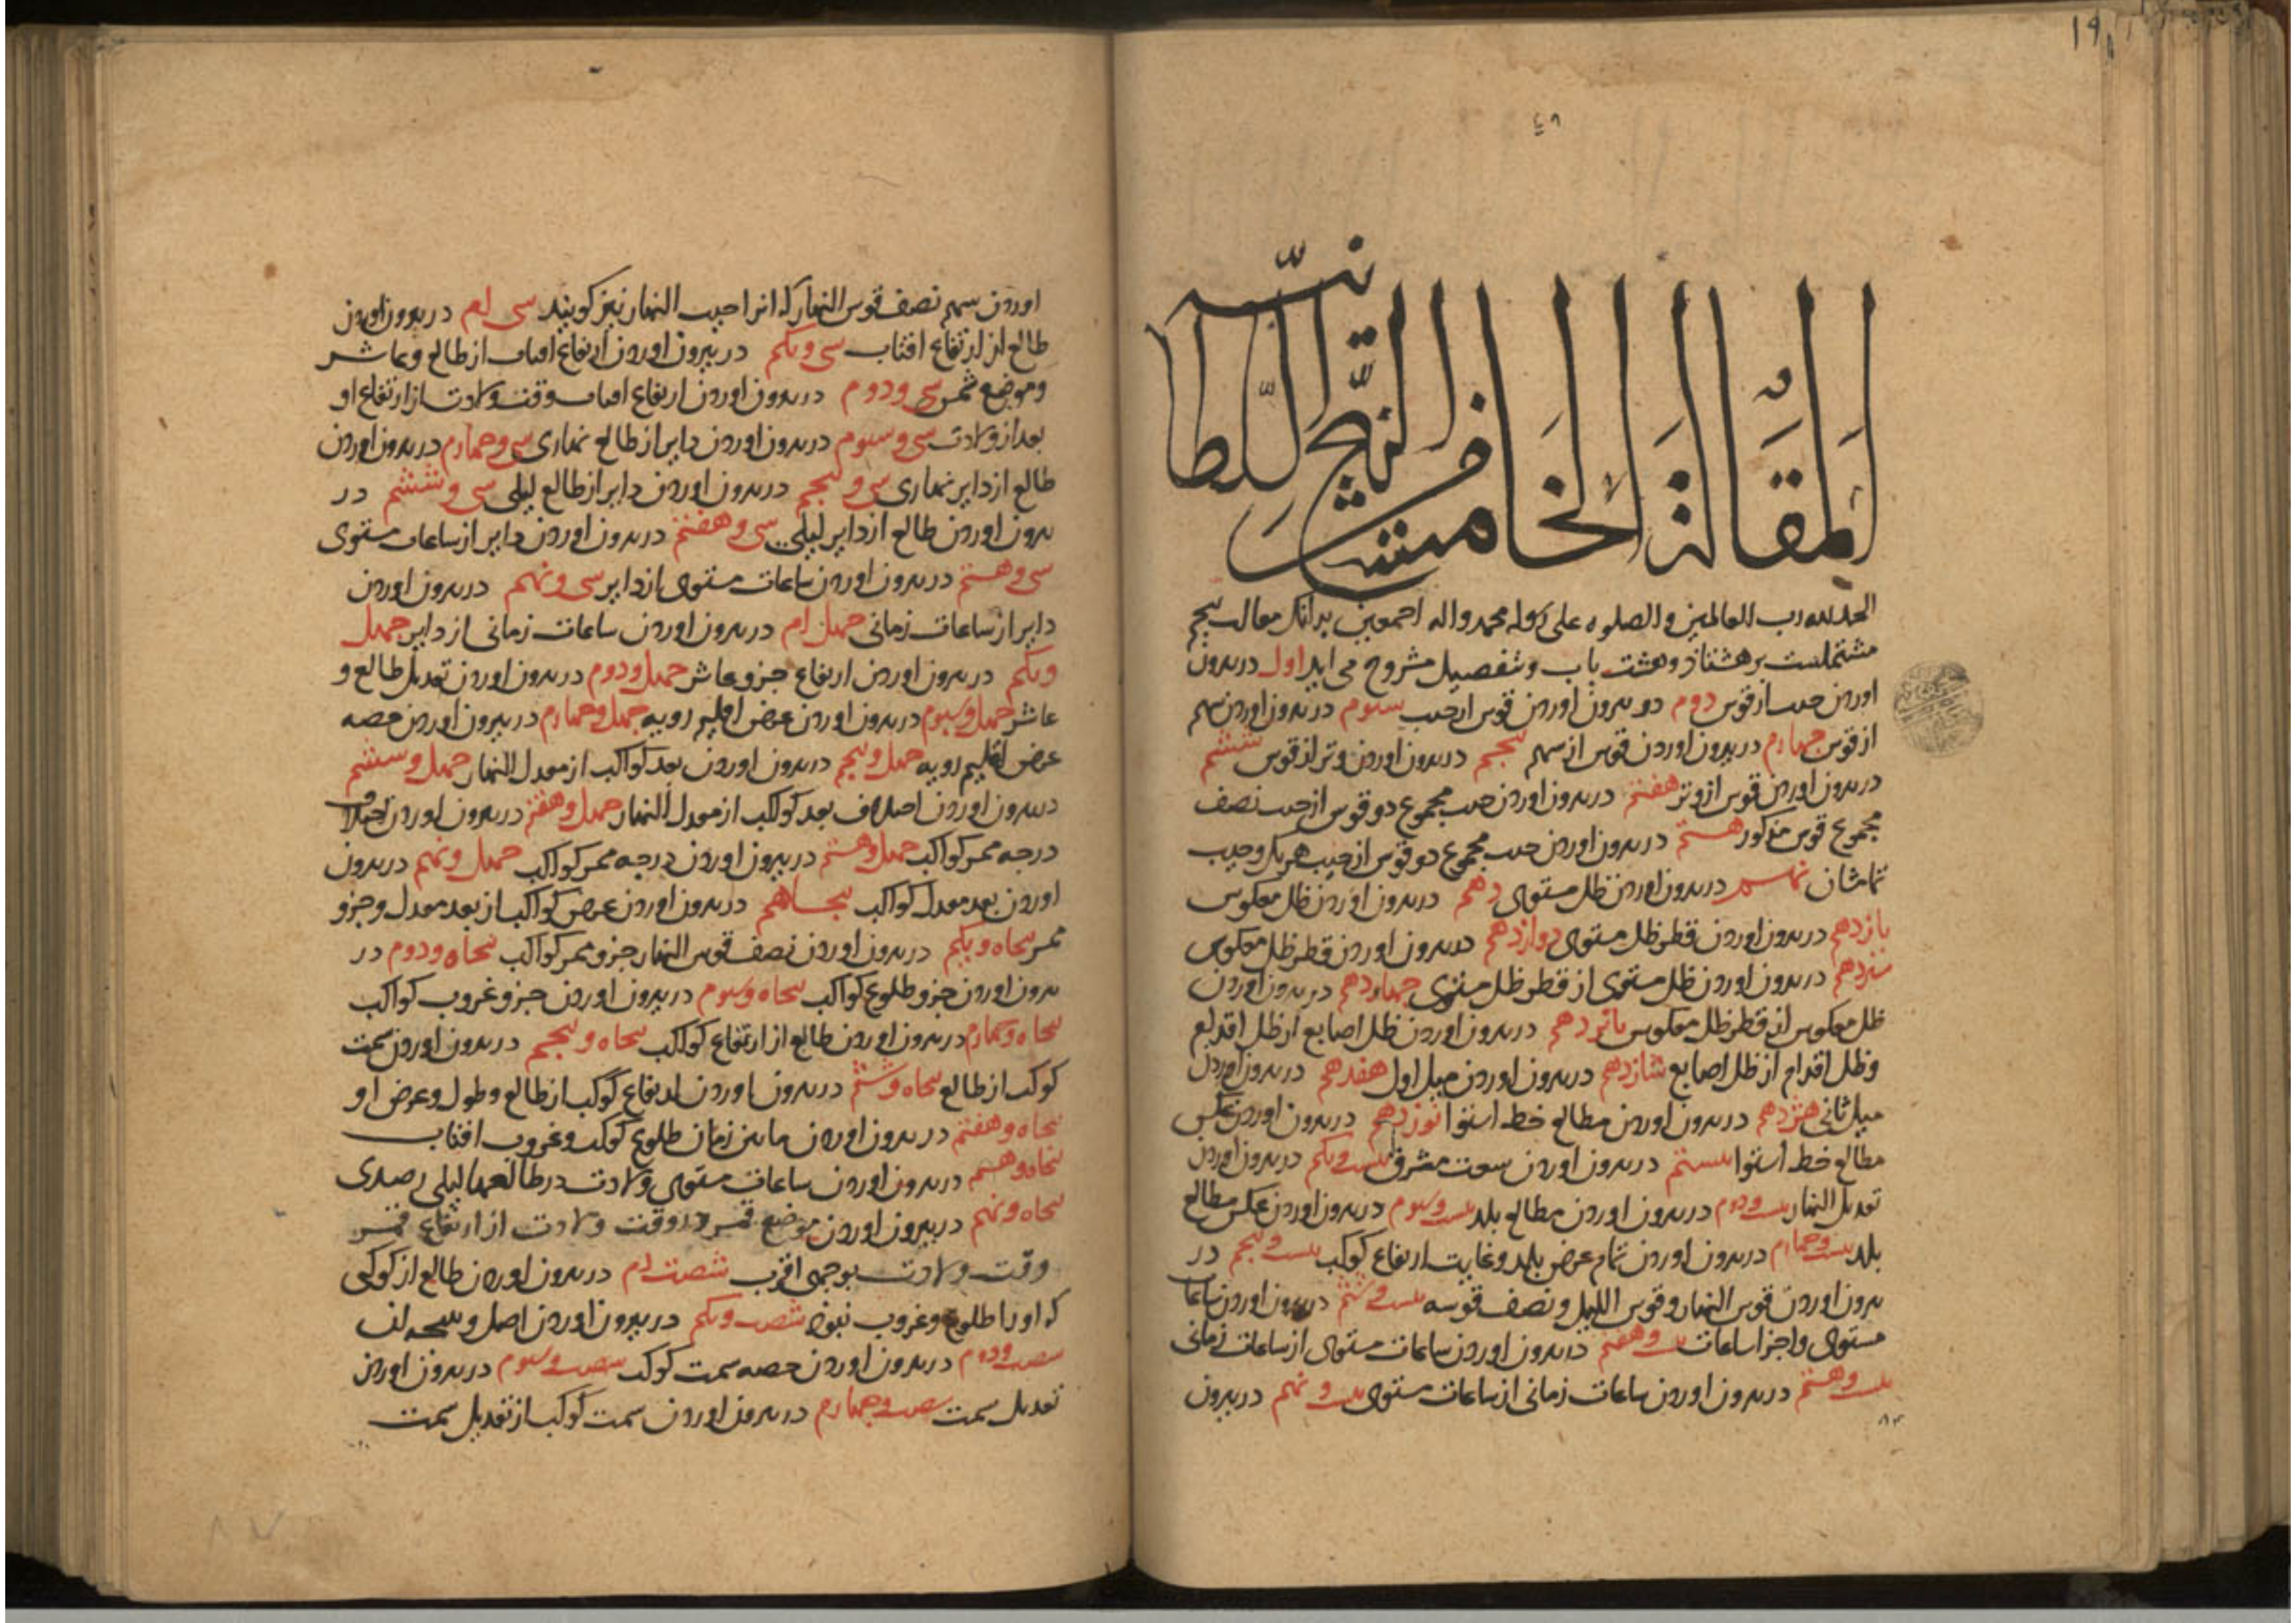 ۱۹
المقالة الخامسة
الزیج السلطانیه
الحمد لله رب العالمین والصلوه علی رسوله محمد واله اجمعین بدانکه مقالت پنجم
مشتملست بر هشتاد و هشت باب و بتفصیل مشروح می اید اول در بیرون
اوردن جیب از قوس دوم در بیرون اوردن قوس از جیب سیوم در بیرون اوردن سهم
از قوس چهارم در بیرون اوردن قوس از سهم پنجم در بیرون اوردن وتر از قوس ششم
در بیرون اوردن قوس از وتر هفتم در بیرون اوردن جیب مجموع دو قوس از جیب نصف
مجموع قوس مذکور هشتم در بیرون اوردن جیب مجموع دو قوس از جیب هریک و جیب
تمامشان نهم در بیرون اوردن ظل مستوی دهم در بیرون اوردن ظل معکوس
یازدهم در بیرون اوردن قطر ظل مستوی دوازدهم در بیرون اوردن قطر ظل معکوس
سیزدهم در بیرون اوردن ظل مستوی از قطر ظل مستوی چهاردهم در بیرون اوردن
ظل معکوس از قطر ظل معکوس پانزدهم در بیرون اوردن ظل اصابع از ظل اقدام
و ظل اقدام از ظل اصابع شانزدهم در بیرون اوردن میل اول هفدهم در بیرون اوردن
میل ثانی هژدهم در بیرون اوردن مطالع خط استوا نوزدهم در بیرون اوردن عکس
مطالع خط استوا بیستم در بیرون اوردن سعت مشرق بیست ویکم در بیرون اوردن
تعدیل النهار بیست ودوم در بیرون اوردن مطالع بلد بیست وسیوم در بیرون اوردن عکس مطالع
بلد بیست وچهارم در بیرون اوردن تمام عرض بلد وغایت ارتفاع کوکب بیست وپنجم در
بیرون اوردن قوس النهار و قوس اللیل و نصف قوسه بیست وششم در بیرون اوردن ساعات
مستوی واجزا ساعات بیست وهفتم در بیرون اوردن ساعات مستوی از ساعات زمانی
بیست وهشتم در بیرون اوردن ساعات زمانی از ساعات مستوی بیست ونهم در بیرون
اوردن سهم نصف قوس النهار که انرا جیب النهار نیز کویند سی ام در بیرون اوردن
طالع از ارتفاع افتاب سی ویکم در بیرون اوردن ارتفاع افتاب از طالع وعاشر
وموضع شمس سی ودوم در بیرون اوردن ارتفاع افتاب وقت ولادت از ارتفاع او
بعد از ولادت سی وسیوم در بیرون اوردن دایر از طالع نهاری سی وچهارم در بیرون اوردن
طالع از دایر نهاری سی وپنجم در بیرون اوردن دایر از طالع لیلی سی وششم در
بیرون اوردن طالع از دایر لیلی سی وهفتم در بیرون اوردن دایر از ساعات مستوی
سی وهشتم در بیرون اوردن ساعات مستوی از دایر سی ونهم در بیرون اوردن
دایر از ساعات زمانی چهل ام در بیرون اوردن ساعات زمانی از دایر چهل
ویکم در بیرون اوردن ارتفاع جزو عاشر چهل ودوم در بیرون اوردن تعدیل طالع و
عاشر چهل وسیوم در بیرون اوردن عرض اقلیم رویه چهل وچهارم در بیرون اوردن حصه
عرض اقلیم رویه چهل وپنجم در بیرون اوردن بعد کواکب از معدل النهار چهل وششم
در بیرون اوردن اختلاف بعد کواکب از معدل النهار چهل وهفتم در بیرون اوردن اختلاف
درجه ممر کواکب چهل وهشتم در بیرون اوردن درجه ممر کواکب چهل ونهم در بیرون
اوردن بعد معدل کواکب پنجاهم در بیرون اوردن عرض کواکب از بعد معدل وجزو
ممر پنجاه ویکم در بیرون اوردن نصف قوس النهار جزو ممر کواکب پنجاه ودوم در
بیرون اوردن جزو طلوع کواکب پنجاه وسیوم در بیرون اوردن جزو غروب کواکب
پنجاه وچهارم در بیرون اوردن طالع از ارتفاع کواکب پنجاه وپنجم در بیرون اوردن سمت
کوکب از طالع پنجاه وششم در بیرون اوردن ارتفاع کوکب از طالع وطول وعرض او
پنجاه وهفتم در بیرون اوردن ما بین زمان طلوع کوکب وغروب افتاب
پنجاه وهشتم در بیرون اوردن ساعات مستوی ولادت در طالعهاء لیلی رصدی
پنجاه ونهم در بیرون اوردن موضع قمر در وقت ولادت از ارتفاع قمر
وقت ولادت بوجهی اقرب شصت ام در بیرون اوردن طالع از کوکبی
که اورا طلوع وغروب نبود شصت ویکم در بیرون اوردن اصل و
شصت ودوم در بیرون اوردن حصه سمت کوکب شصت وسیوم در بیرون اوردن
تعدیل سمت شصت وچهارم در بیرون اوردن سمت کوکب از تعدیل سمت